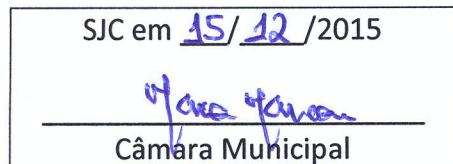 SJC em 15/12/2015
Câmara Municipal